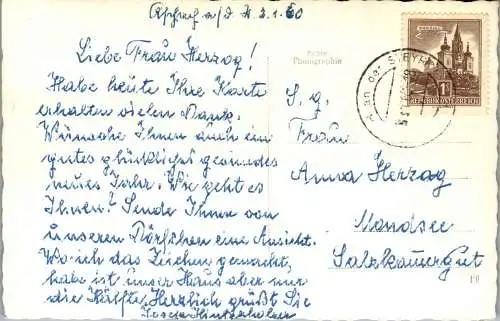 Aschach a/d St 3.1.60
Liebe Frau Herzog!
Habe heute Ihre Karte
erhalten vielen Dank.
Wünsche Ihnen auch ein
gutes glückliches gesundes
neues Jahr. Wie geht es
Ihnen? Sende Ihnen von
unseren Dörfchen eine Ansicht.
Wo ich das Zeichen gemacht,
habe ist unser Haus aber nur
die Hälfte. Herzlich grüßt Sie
Hinterholer
Echte
Photographie
an der STEYR
REPUBLIK ÖSTERREICH
S. g.
Frau
Anna Herzog
Mondsee
Salzkammergut